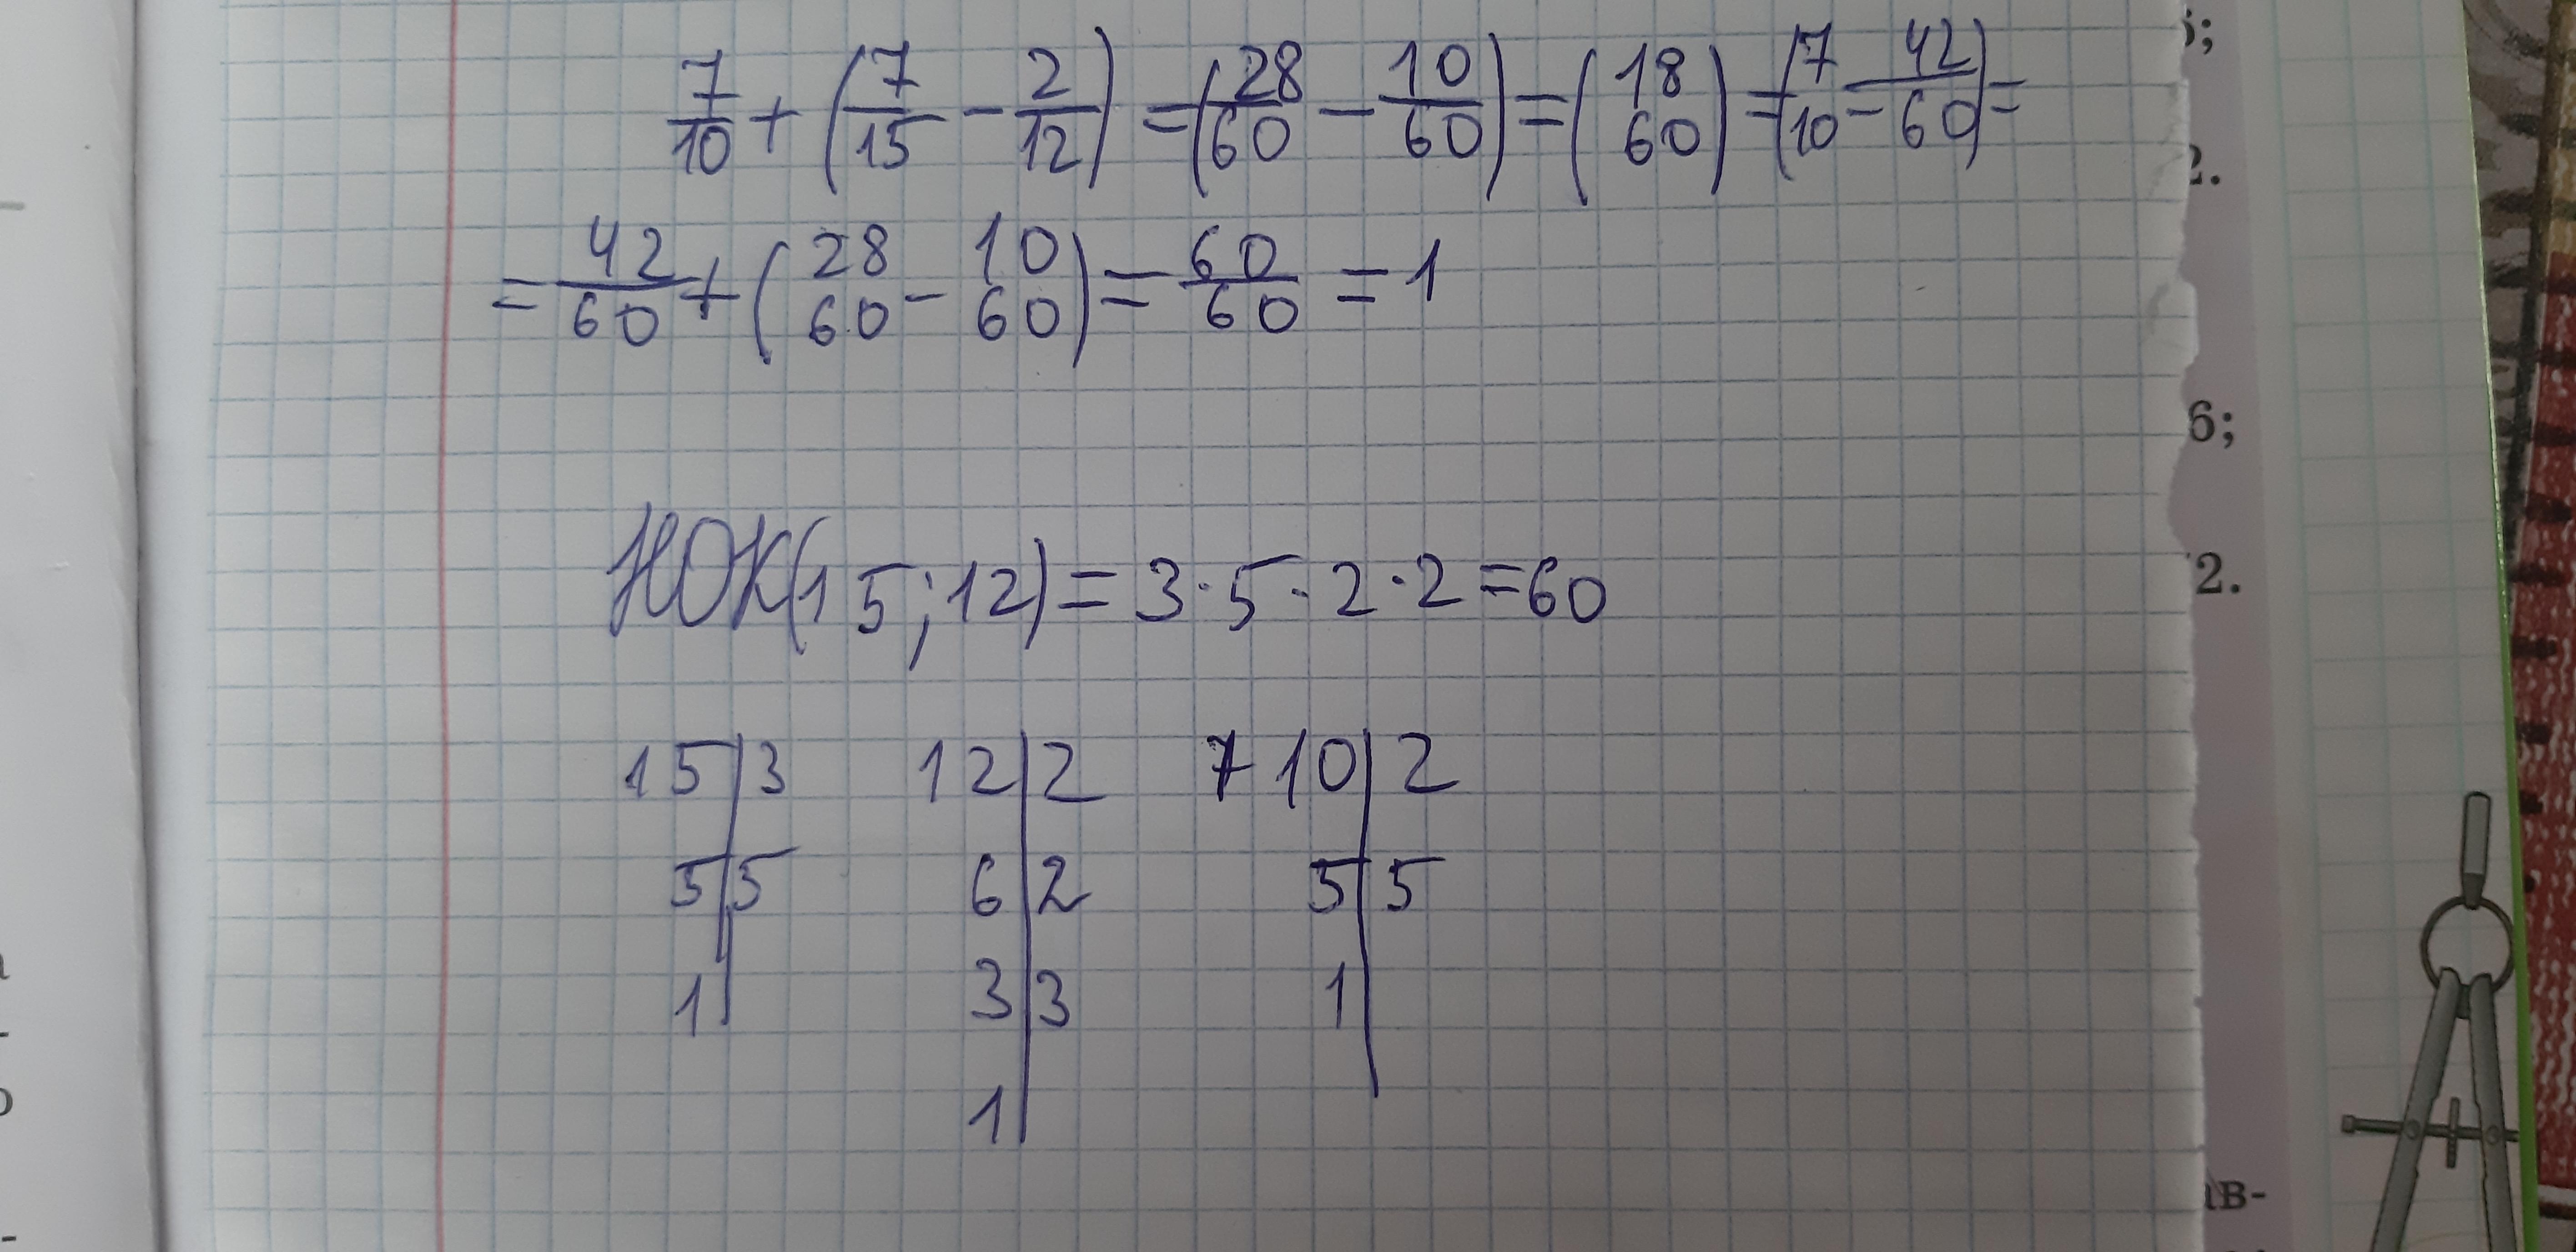 7/10 + (7/15 - 2/12) = (28/60 - 10/60) = (18 60) = (7/10 = 42/60) =
= 42/60 + (28 60 - 10 60) = 60/60 = 1
НОК(15;12) = 3·5·2·2 = 60
15|3 12|2 7 10|2
5|5 6|2 5|5
1| 3|3 1|
1|
5;
2.
6;
2.
ав-